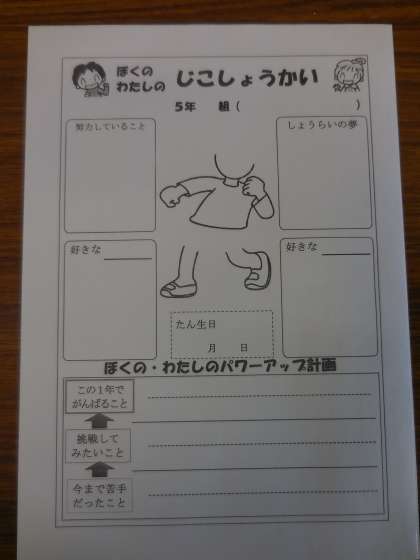 ぼくの
わたしの
じこしょうかい
5年 組（ ）
努力していること
しょうらいの夢
好きな
好きな
たん生日
月 日
ぼくの・わたしのパワーアップ計画
この1年で
がんばること
挑戦して
みたいこと
今まで苦手
だったこと